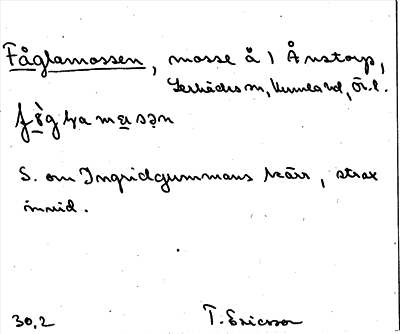 Fåglamossen, mosse å 1 Ånstorp,
Lerbäcks sn, Kumla hd, Ör. l.
S. om Ingridgummans kärr, strax
invid.
30,2 T. Ericsson